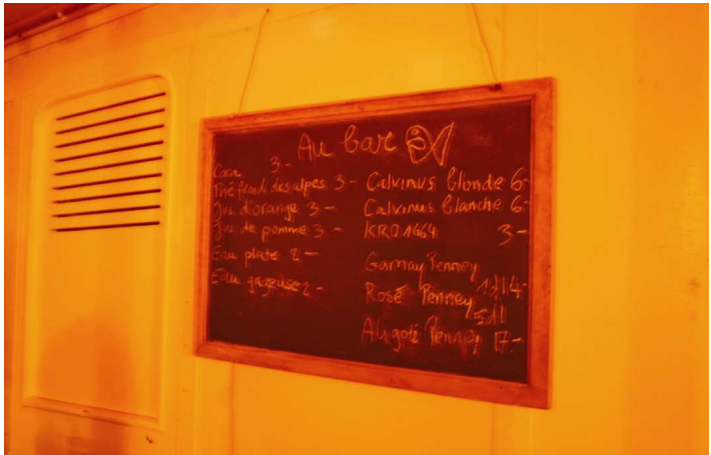 Au bar
Coca 3.-
Thé froid des alpes 3.-
Jus d'orange 3.-
Jus de pomme 3.-
Eau plate 2.-
Eau gazeuse 2.-
Calvinus blonde 6.-
Calvinus blanche 6.-
KRO 1664 3.-
Gamay Penney
Rosé Penney
Aligoté Penney